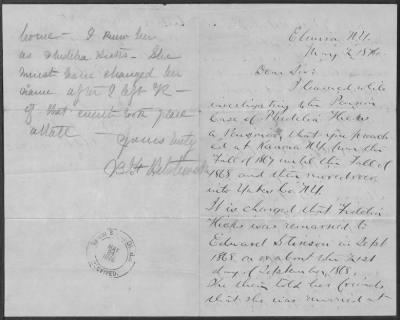 home. I knew her
as Fidelia Hicks. She
must have changed her
name after I left K—
if that event took place
at all
Yours truly
Elmira N.Y.
May 2
Dear Sir:
I learned while
investigating the Pension
Case of Fidelia Hicks
a Pensioner that you preach
ed at Kanona N.Y. from the
Fall of 1867 until the Fall of
1868 and then moved
into Yates Co. N.Y.
It is charged that Fidelia
Hicks was remarried to
Edward Stinson in Sept
1868 on or about the 21st
day of September, 1868.
She then told her friends
that she was married at
MAY